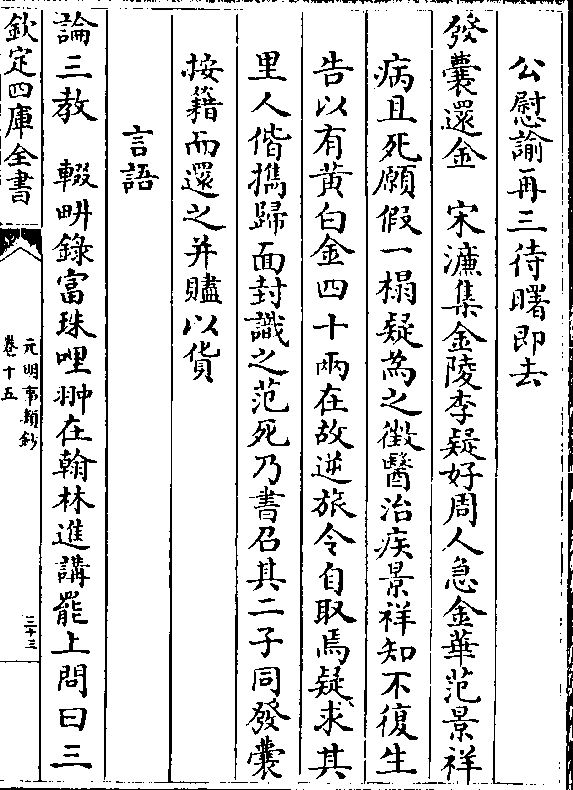 公慰諭再三待曙即去
發囊還金　宋濂集金陵李疑好周人急金華范景祥
病且死願假一榻疑為之徵醫治疾景祥知不復生
告以有黃白金四十兩在故逆旅令自取焉疑求其
里人偕攜歸面封識之范死乃書召其二子同發囊
按籍而還之并贐以貨
言語
論三教　輟畊錄富珠哩翀在翰林進講罷上問曰三
欽定四庫全書
元明事類鈔
卷十五
三十三